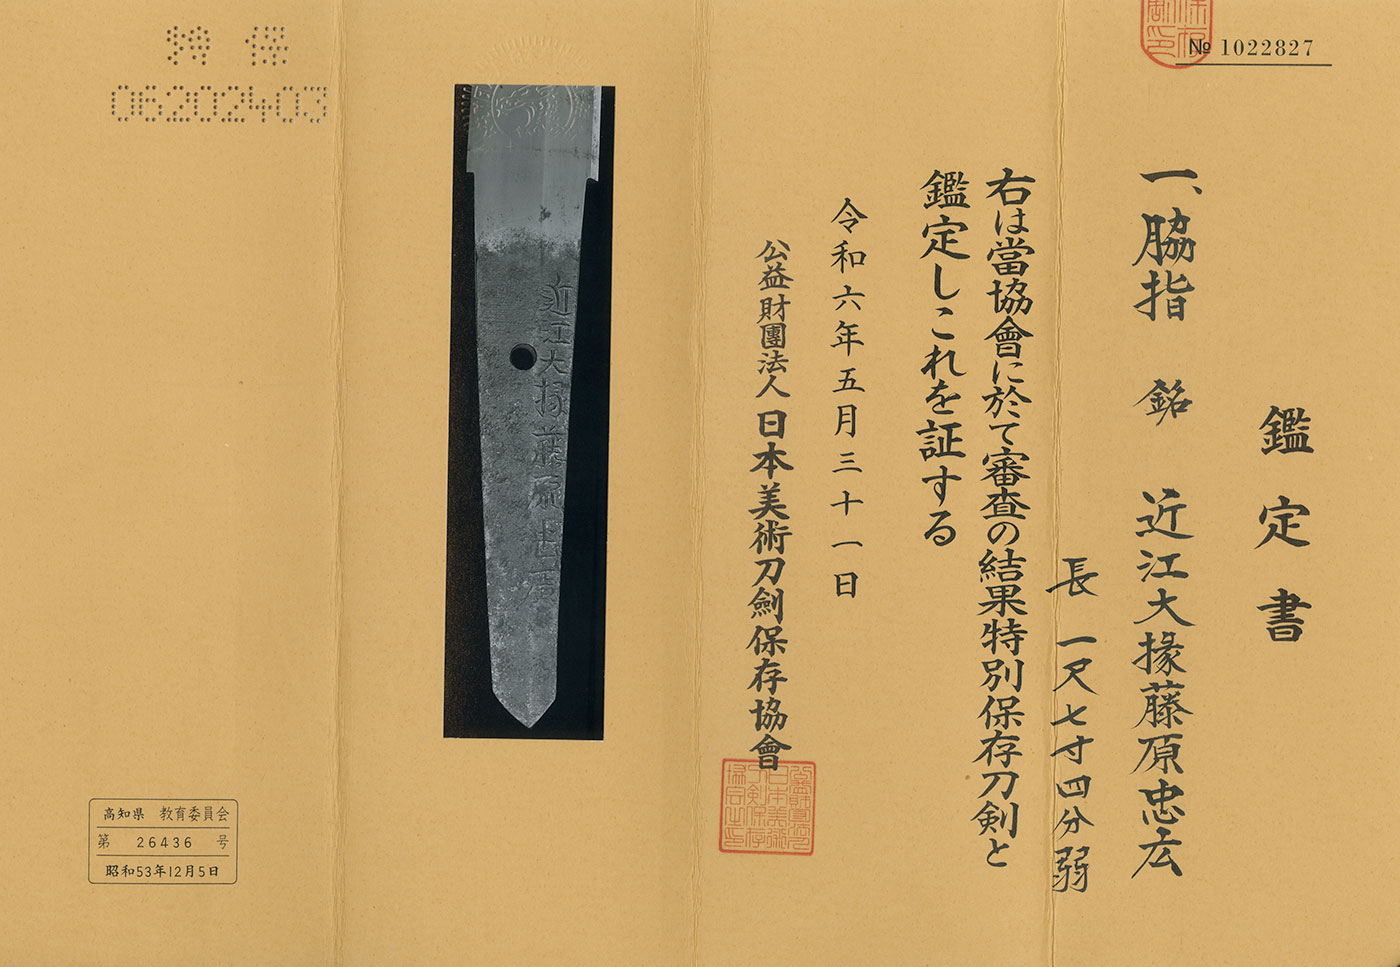 № 1022827
鑑定書
一、脇指 銘 近江大掾藤原忠広
長 一尺七寸四分弱
右は當協會に於て審査の結果特別保存刀剣と
鑑定しこれを証する
令和六年五月三十一日
公益財團法人 日本美術刀劍保存協會
近江大掾藤原忠広
特 保
06202403
高知県 教育委員会
第 26436 号
昭和53年12月5日